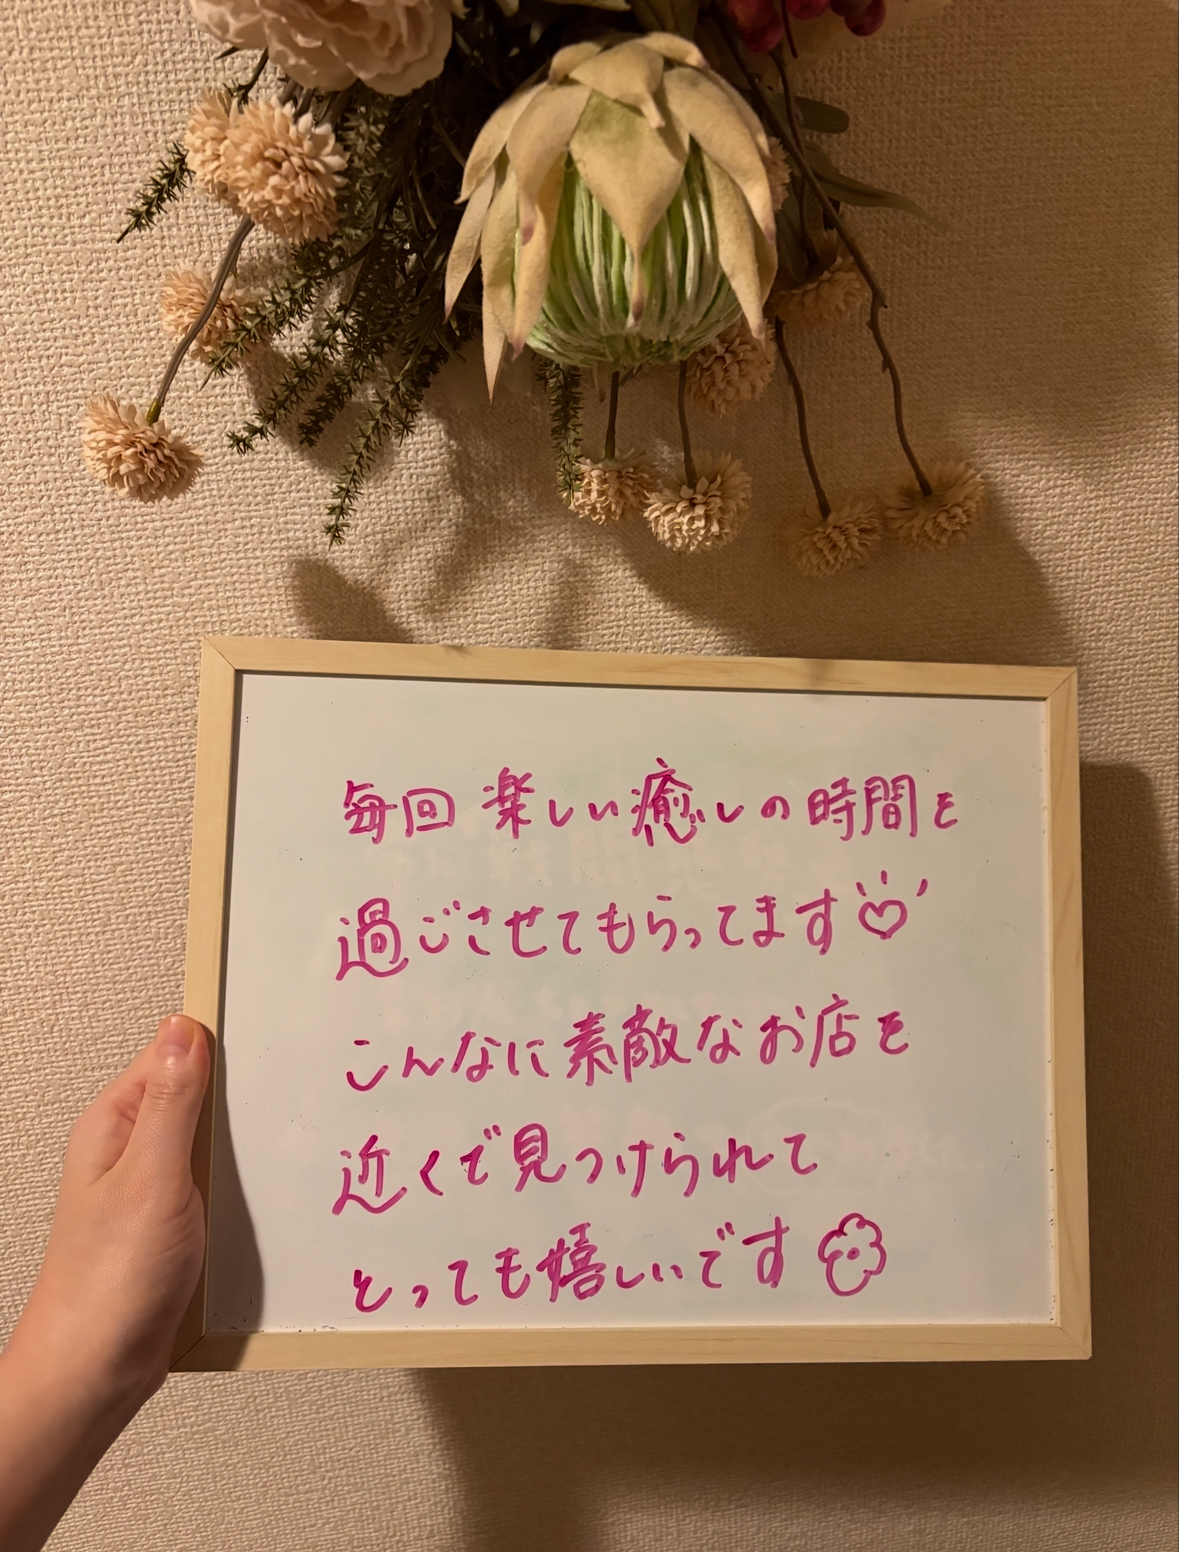 毎回楽しい癒しの時間を
過ごさせてもらってます♡
こんなに素敵なお店を
近くで見つけられて
とっても嬉しいです